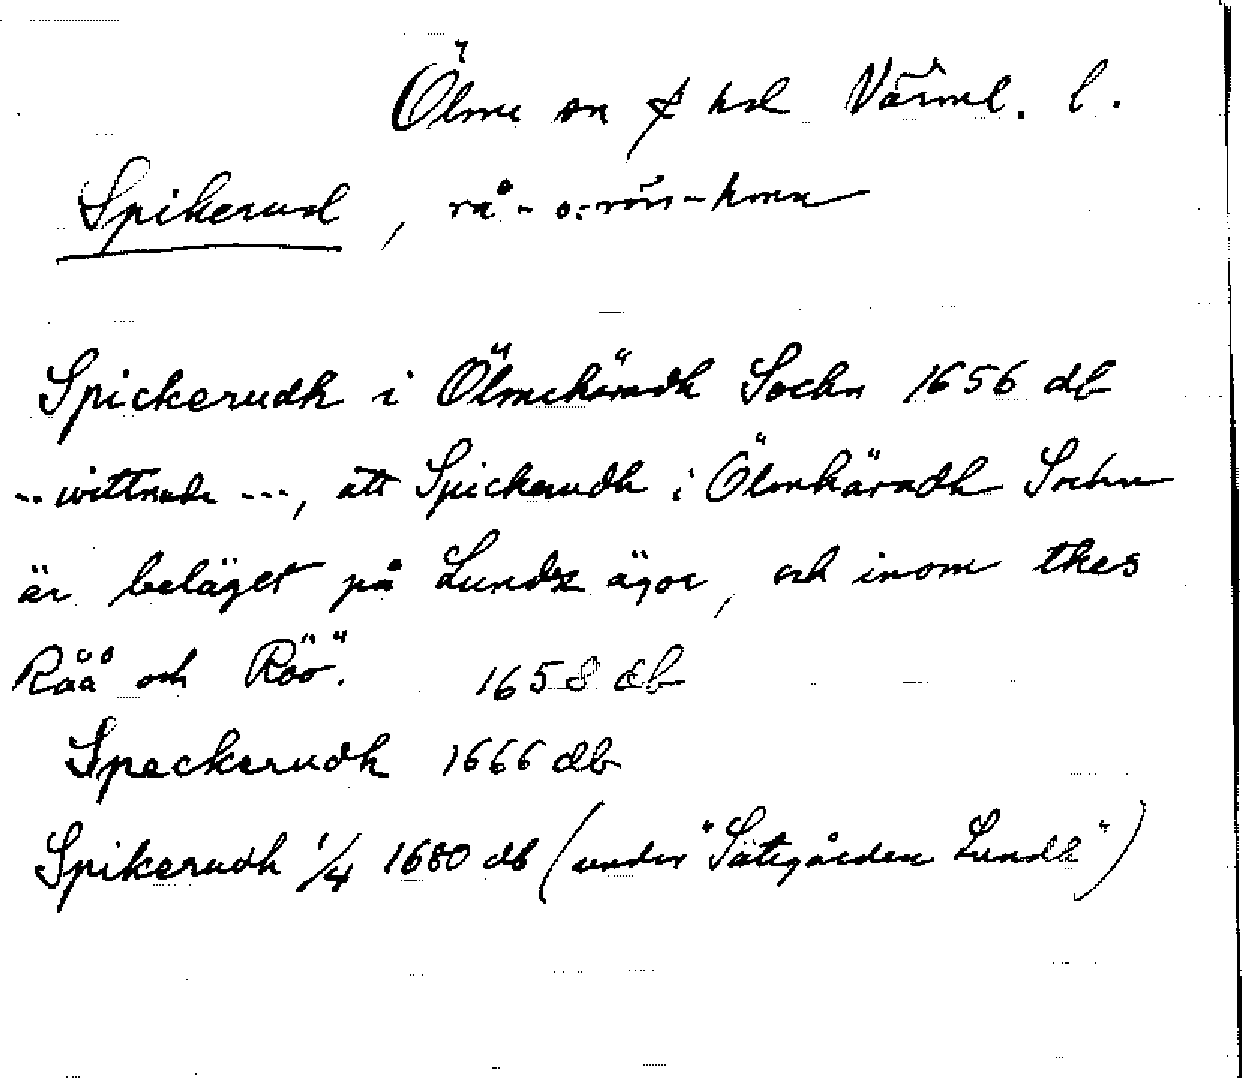 Ölme sn o hd Värml. l.
Spikerud, rå- o. rörs-hem
Spickerudh i Ölmehäradh Sochn 1656 db
-- wittnade ---, att Spickerudh i Ölmhäradh Sochn
är beläget på Lundz ägor, och inom thes
Råå och Röö". 1658 db
Speckerudh 1666 db
Spikerudh 1/4 1680 db (under "Sätegården Lundh")